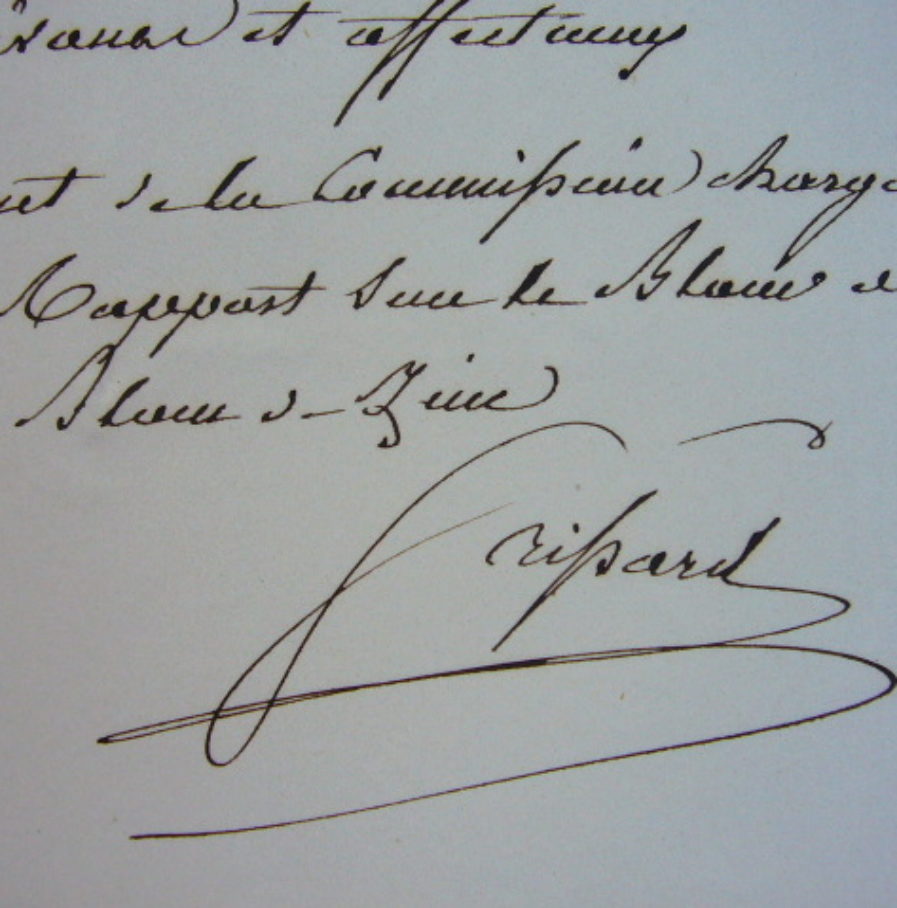 et affectueux
de la Commission charg
Rapport sur le Blanc de
Blanc de Zinc
Grissard